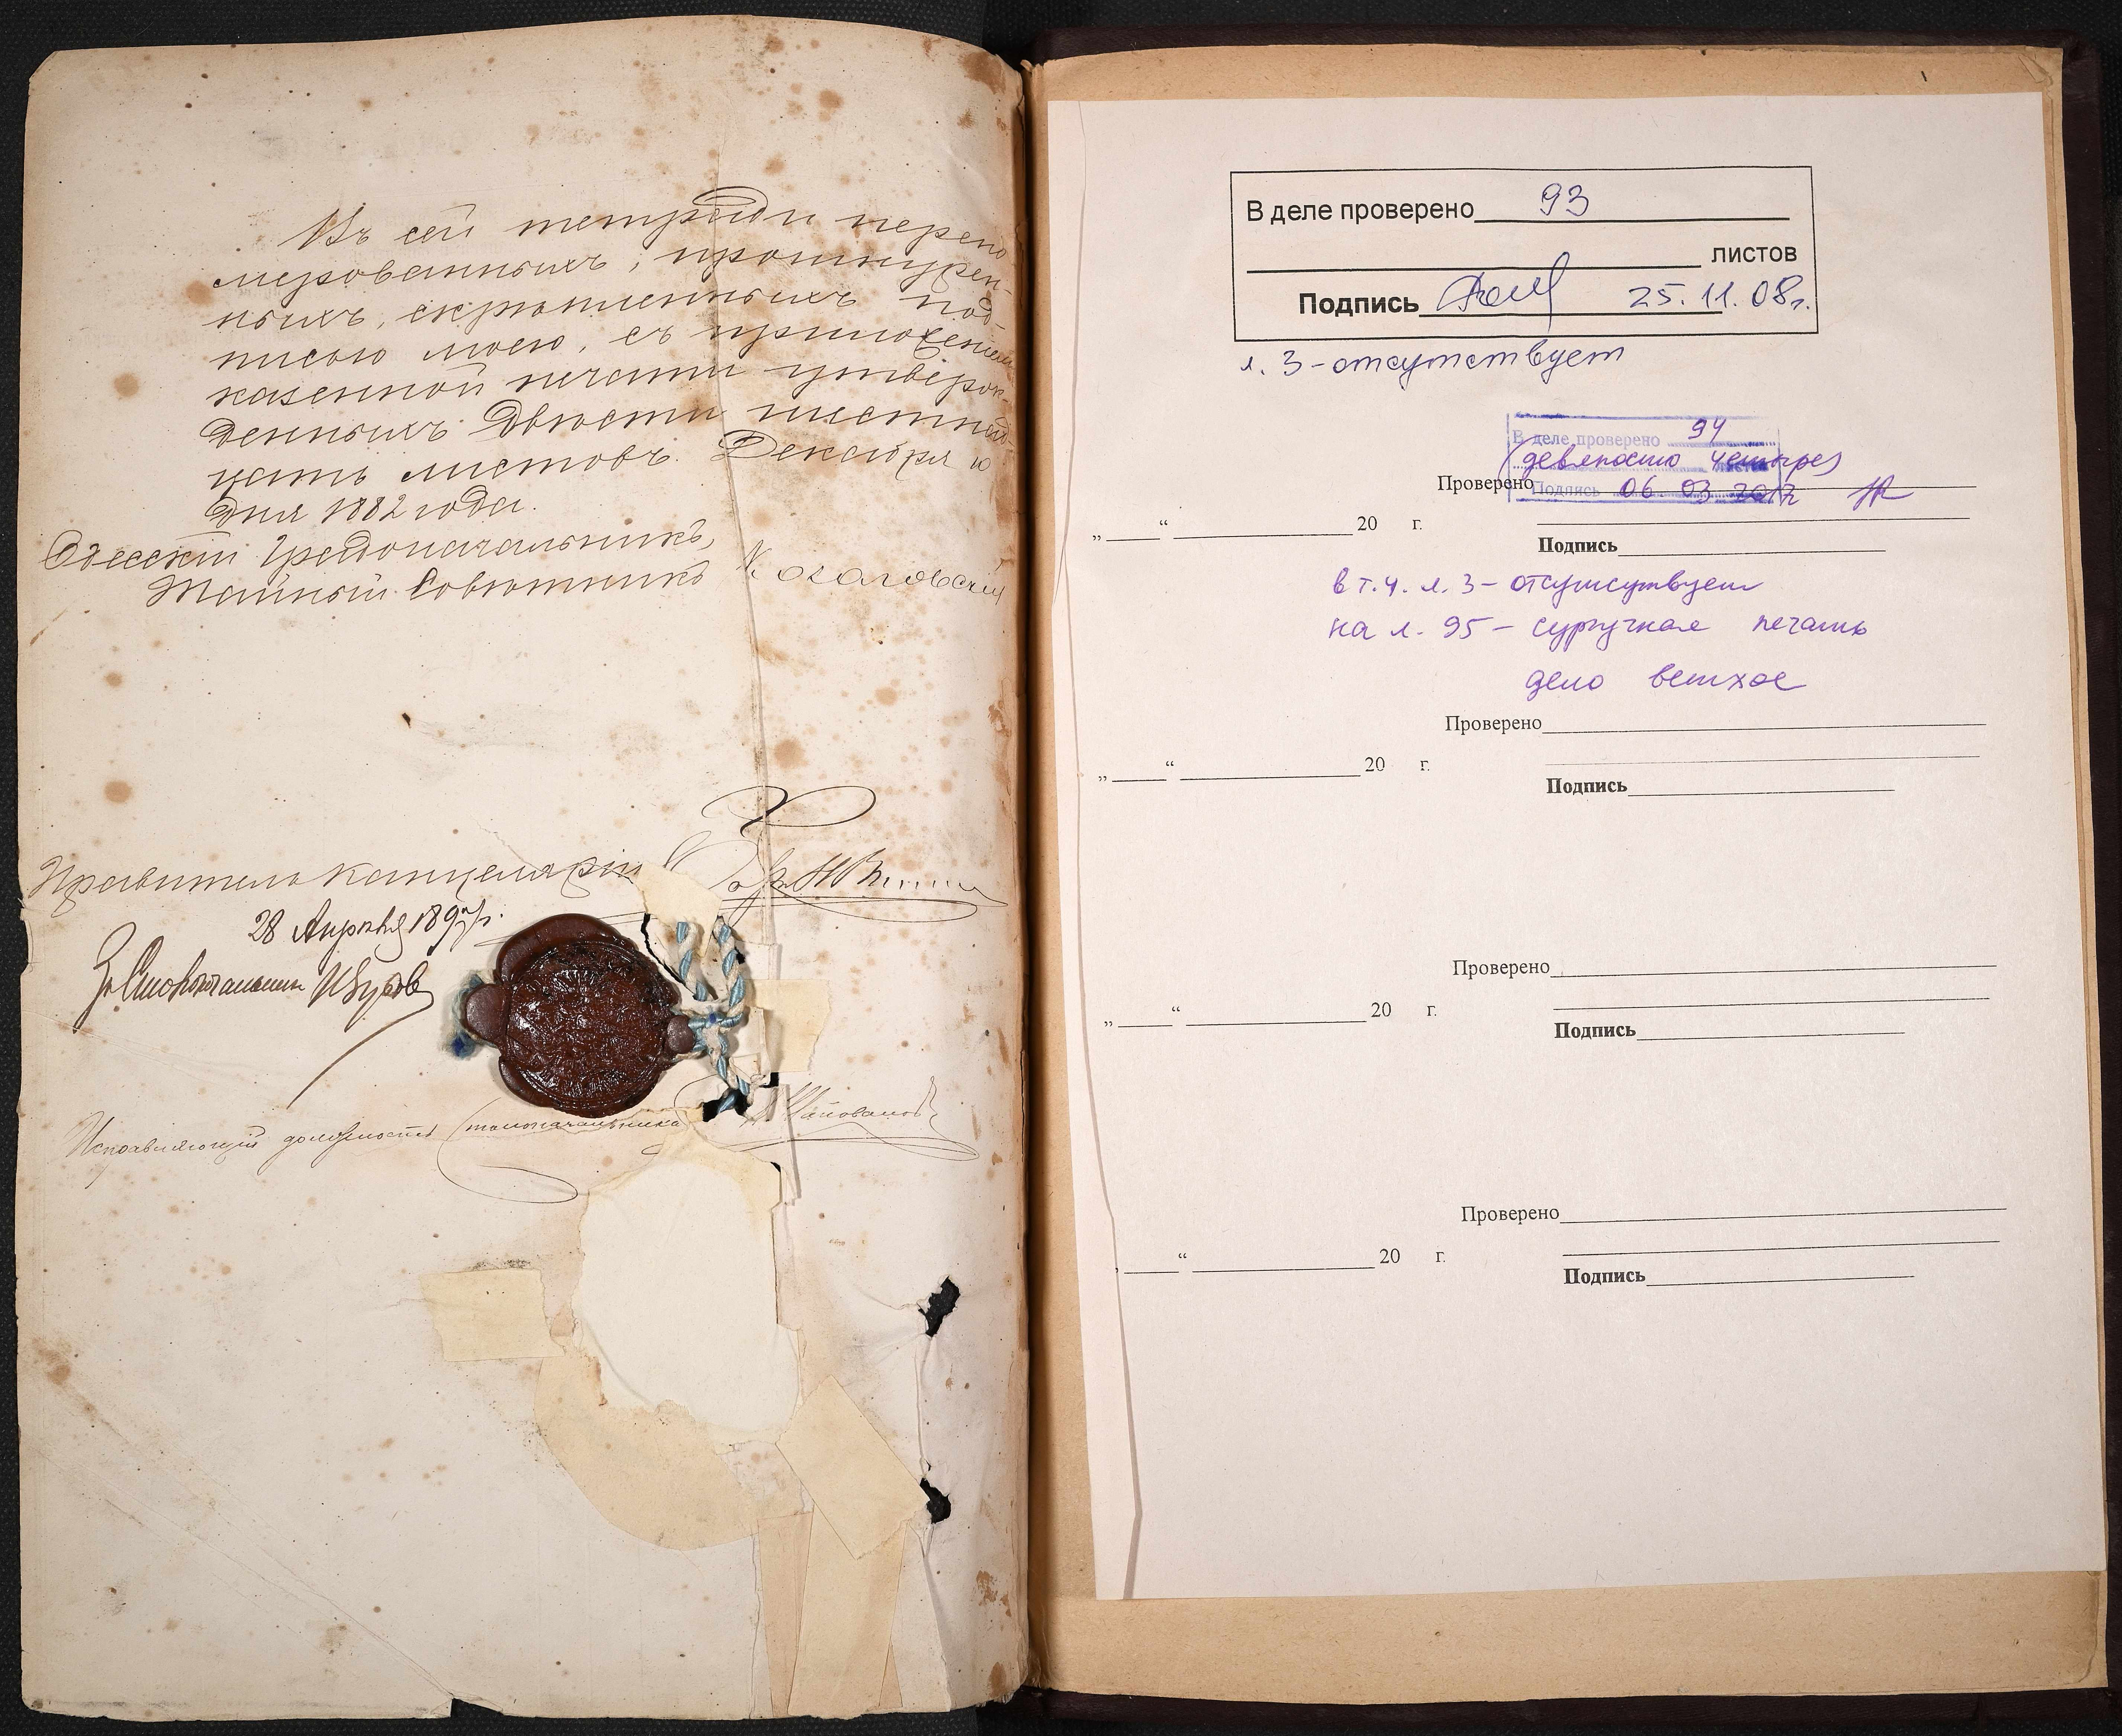 Въ сей тетради перено
мерованныхъ, прошнурен-
ныхъ, скрѣпленныхъ под-
писью моею, съ приложеніем
казенной печати утверж-
денныхъ двѣсти шестнад-
цать листовъ. Декабря 10
дня 1882 года.
Одесскій Градоначальникъ,
Тайный Совѣтникъ Косаговскій
Правитель канцеляріи
28 Апрѣля 189
Исправляющій должность Столоначальника
В деле проверено 93
листов
Подпись 25.11.08г.
л. 3 - отсутствует
В деле проверено 94
(девяносто четыре)
Проверено
Подпись 06 03 2017
„ “ 20 г.
Подпись
в т.ч. л. 3 - отсутствует
на л. 95 - сургучная печать
дело ветхое
Проверено
„ “ 20 г.
Подпись
Проверено
„ “ 20 г.
Подпись
Проверено
“ 20 г.
Подпись